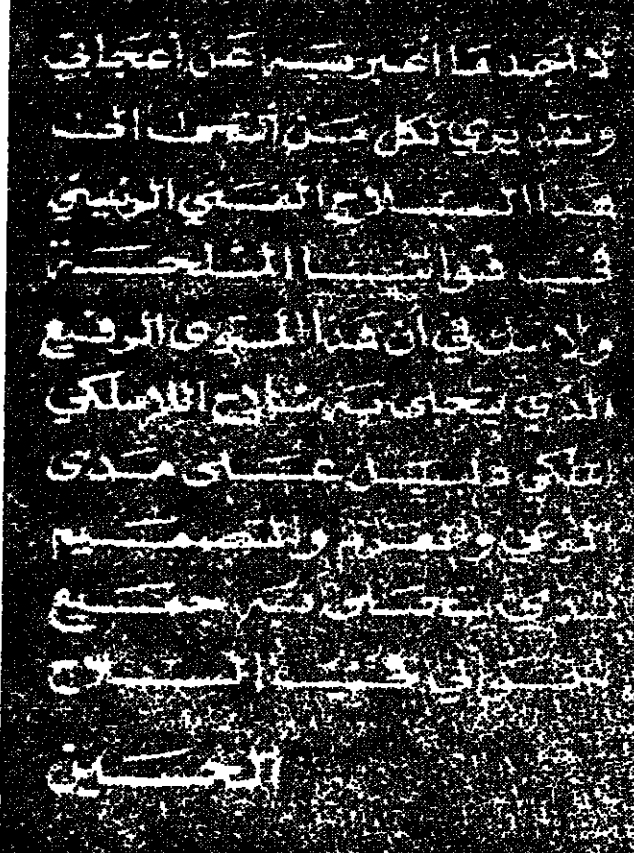 لا أجد ما أعبر به عن إعجابي
وتقديري لكل من
هذا السلاح الفني الرئيسي
في قواتنا المسلحة
ولا شك في أن هذا المستوى الرفيع
الذي يتحلى به سلاح اللاسلكي
الملكي دليل على مدى
الوعي والعزم والتصميم
الذي يتحلى به جميع
السلاح
الحسين